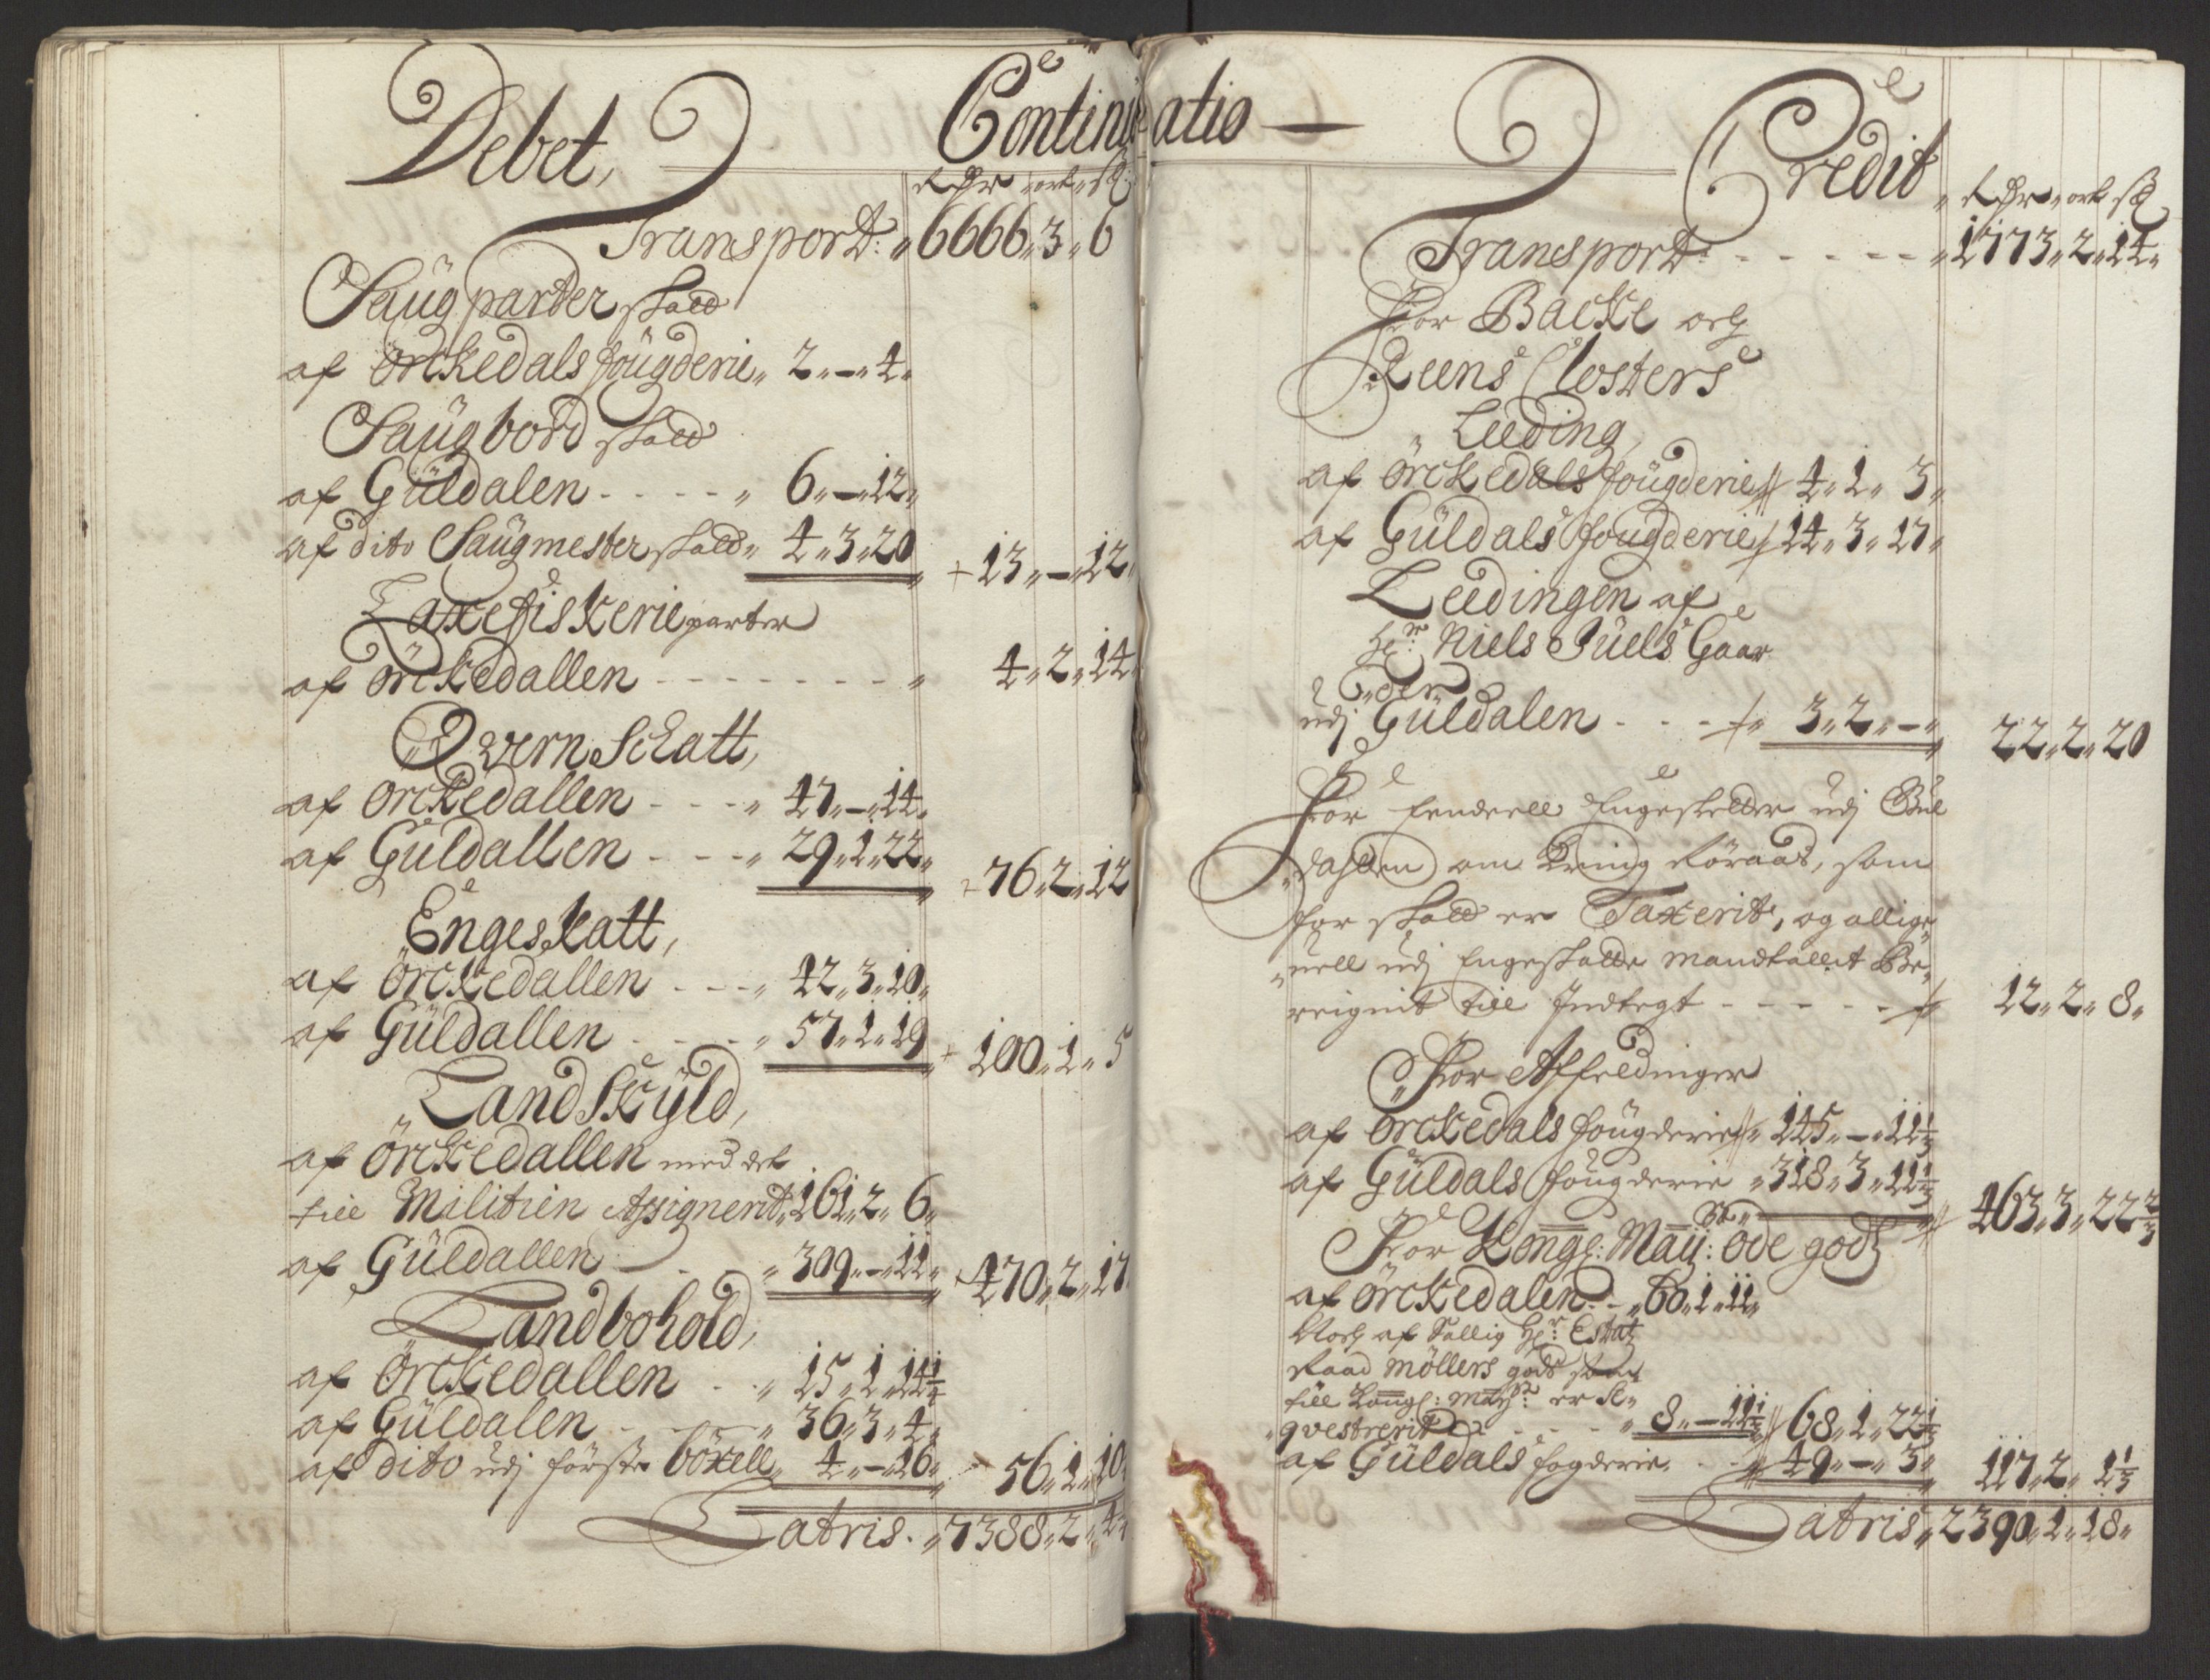 Debet,
Continuatio
rdr ort sk
Transport: 6666„3„6
Saugparter skatt
af Örckedals fougderie„ 2„—„4„
Saugbord skatt
af Güldalen - - - - „ 6„—„12„
af dito Saugmester skatt„ 4„3„20 13„—„12„
Laxefiskerie parter
af Örckedallen - - - - - - - „ 4„2„14
Qvern Schatt,
af Orckedallen - - - „ 47„—„14„
af Güldallen - - - „ 29„1„22„ 76„2„12
Engeskatt,
af Örckedallen - - - „ 42„3„10„
af Güldallen - - - „ 57„1„19 100„1„5
Landskyld,
af Örckedallen med det
till Militien Assignerit„ 161„2„6„
af Güldallen - - „ 309„—„11„ 470„2„17
Landbohold,
af Örckedallen - - „ 15„1„14 1/4
af Güldalen - - - „ 36„3„4„
af dito udj förste böxell„ 4„—„16„ 56„1„10
Latris. „7388„2„4
Credit
rdr ort sk
Transport - - - - - „1773„2„14„
For Backe och
Reens Closters
Leeding
af Örckedals fougderie 4„1„3„
af Güldals fougderie 14„3„17„
Leedingen af
Hr: Niels Juels Gaar
„der
udj Güldalen - - - „ 3„2„—„ 22„2„20
For Engeskatter udj Gul
„dahlen om kring Röraas, som
for skatt er Taxerit, og allige
„uell udj Engeskatte mandtallet Be„
reignit till Indtegt - - - - - 12„2„8„
For Affeldinger
af Orckedals fougderie „145„—„11 1/3
af Güldals fougderie „318„3„11 1/3 463„3„22 2/3
For Kongl: May: öde gods
af Örckedalen - - „60„1„11„
Noch af Sallig Hr: Estatz
Raad Möllers gods som
till Kongl: Mayst: er Se„
„qvestrerit - - - - „ 8„—„11 1/3 68„1„22 1/3
af Güldals fogderie. - - „49„—„3„ 117„2„1 1/3
Latris„2390„1„18„